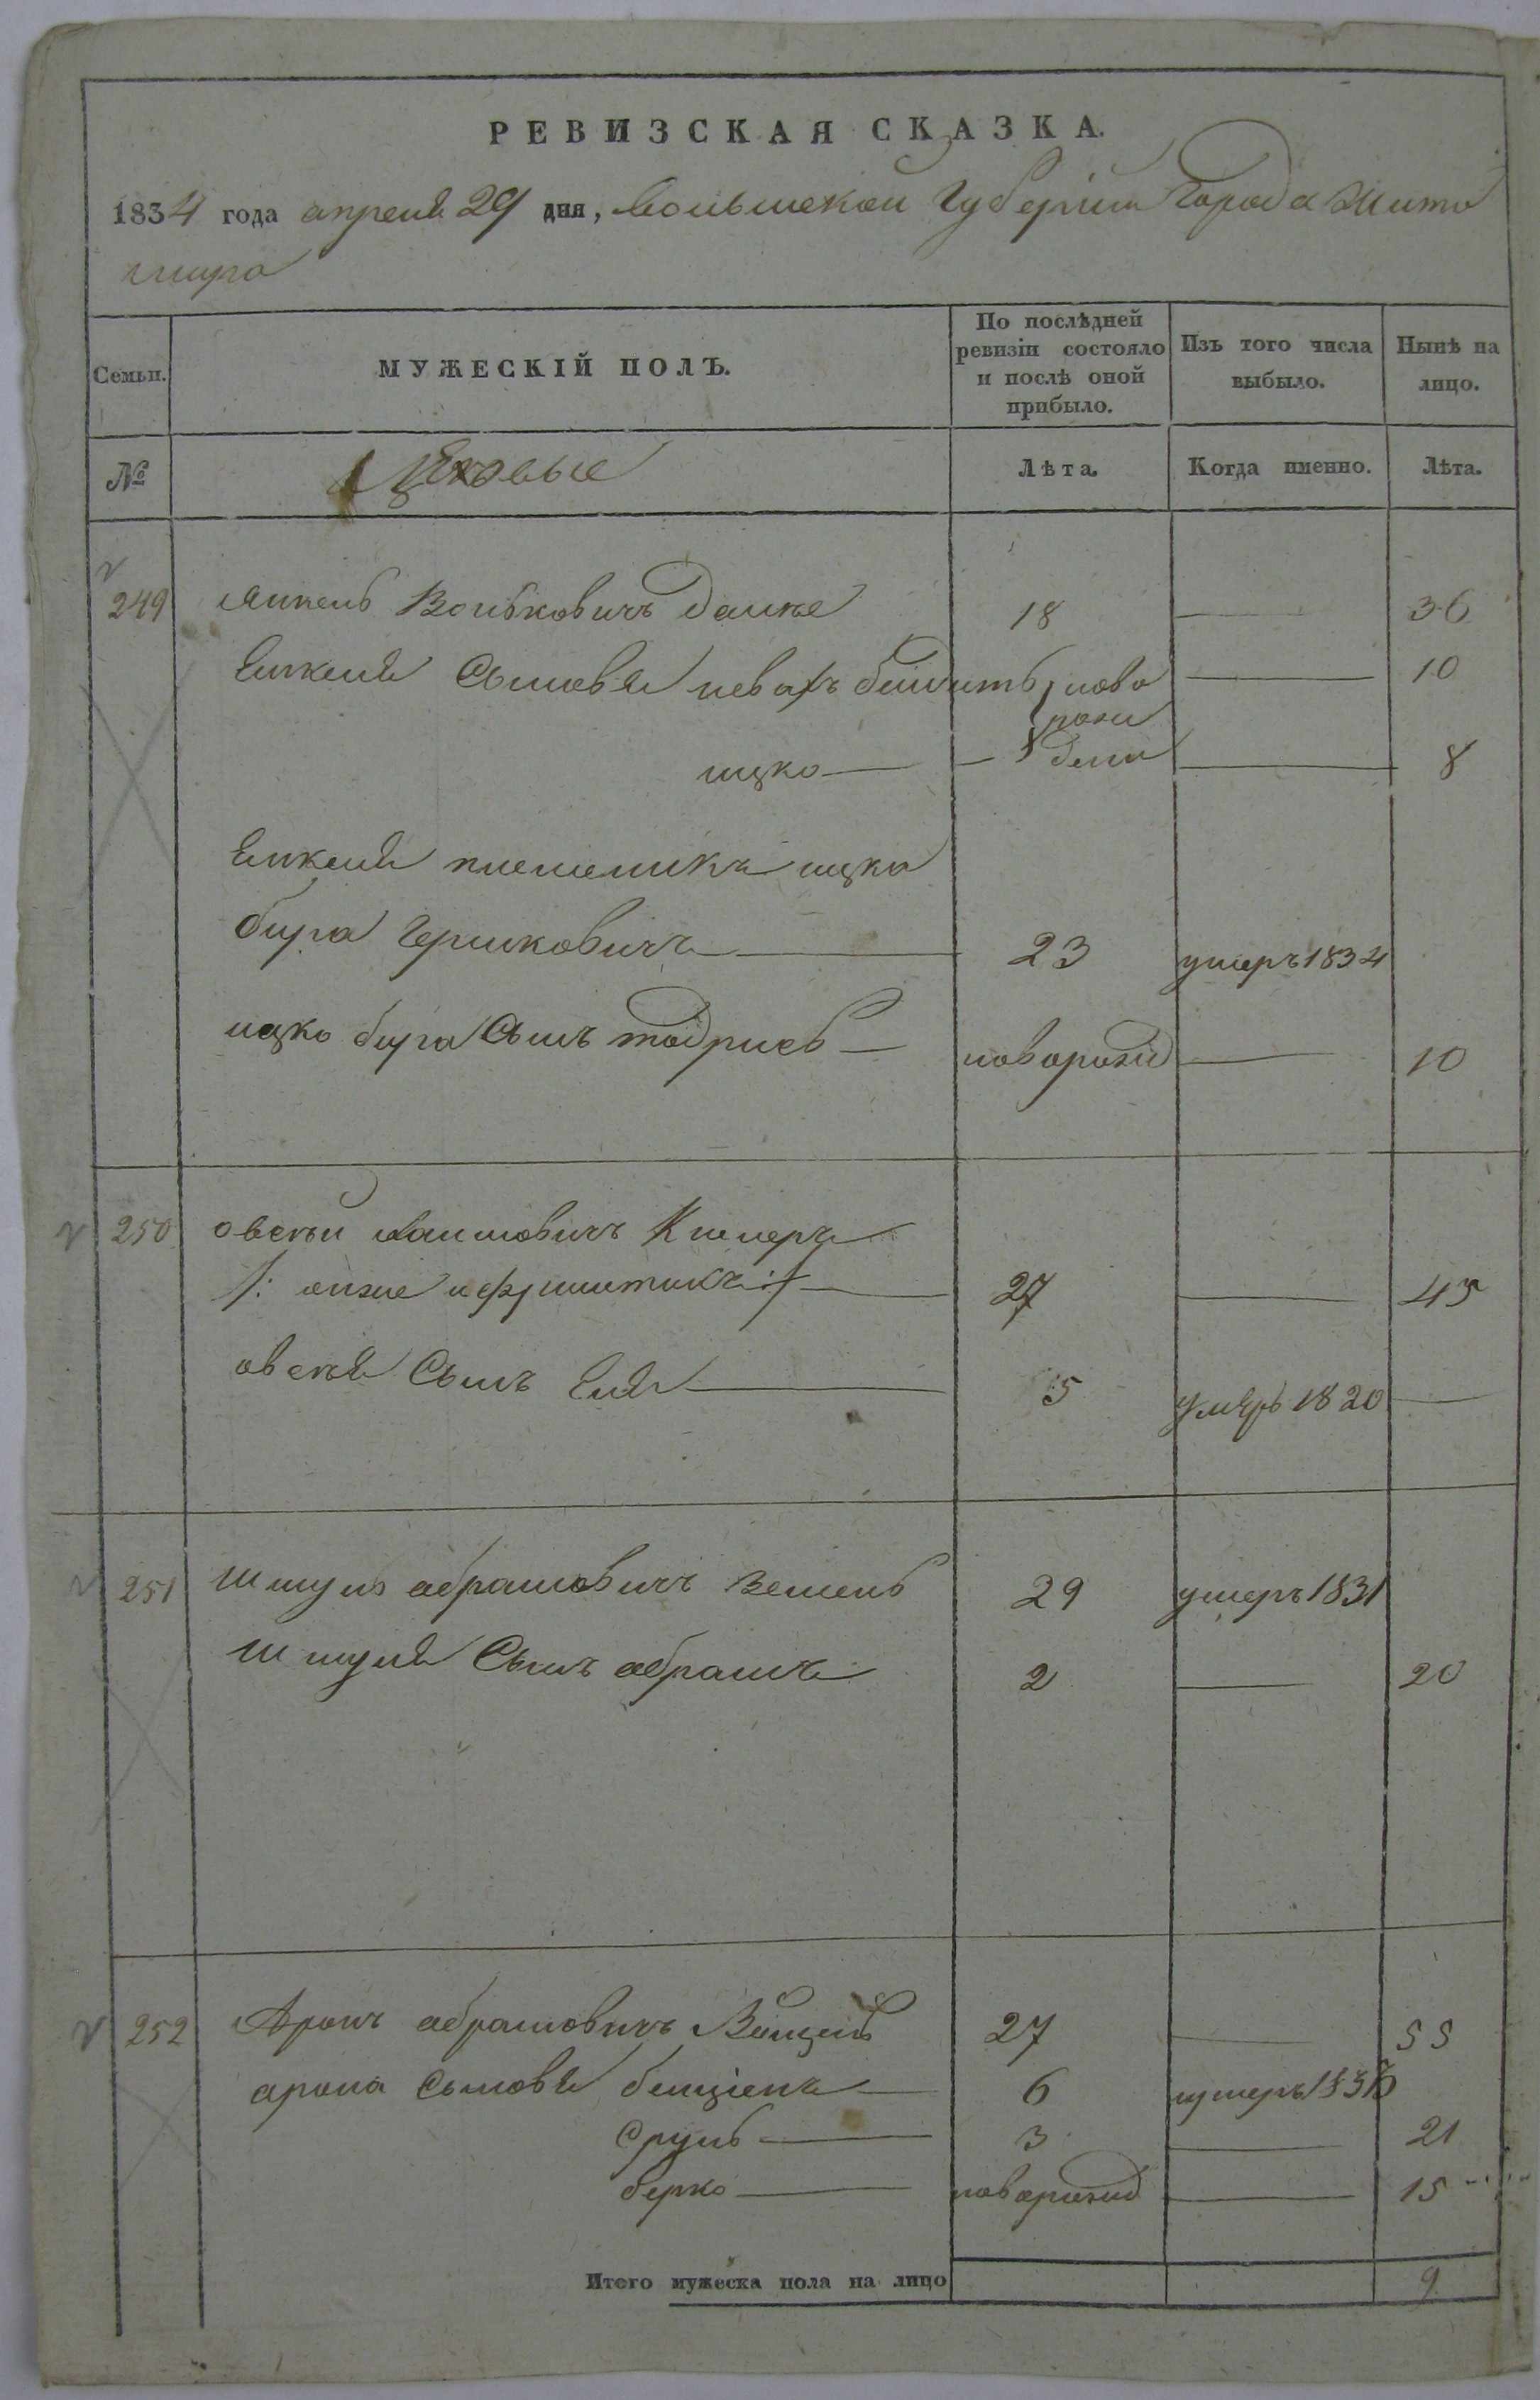 РЕВИЗСКАЯ СКАЗКА.
1834 года апреля 29 дня, Волынской Губернии Города Жито
мира
Семьи. МУЖЕСКІЙ ПОЛЪ. По послѣдней ревизіи состояло и послѣ оной прибыло. Изъ того числа выбыло. Нынѣ на лицо.
№ Цеховые Лѣта. Когда именно. Лѣта.
249 Янкель Волькович 18 — 36
Янкеля Сыновья ново — 10
рож
ицко — — дены — 8
Янкеля племеникъ ицко
бира Гершковичъ — 23 умеръ 1834
ицко бира Сынъ тодрисъ — новорожд — 10
250 овсей Хаимовичъ
/: онже :/ — 27 — 45
овсея Сынъ Еля — 5 умеръ 1820 —
251 Шмуль абрамовичъ 29 умеръ 1831
Шмуля Сынъ абрамъ 2 — 20
252 Аронъ абрамовичъ 27 — 55
арона Сыновья бенціенъ — 6 умеръ
Сруль — 3 — 21
берко — новорожд — 15
Итого мужеска пола на лицо 9